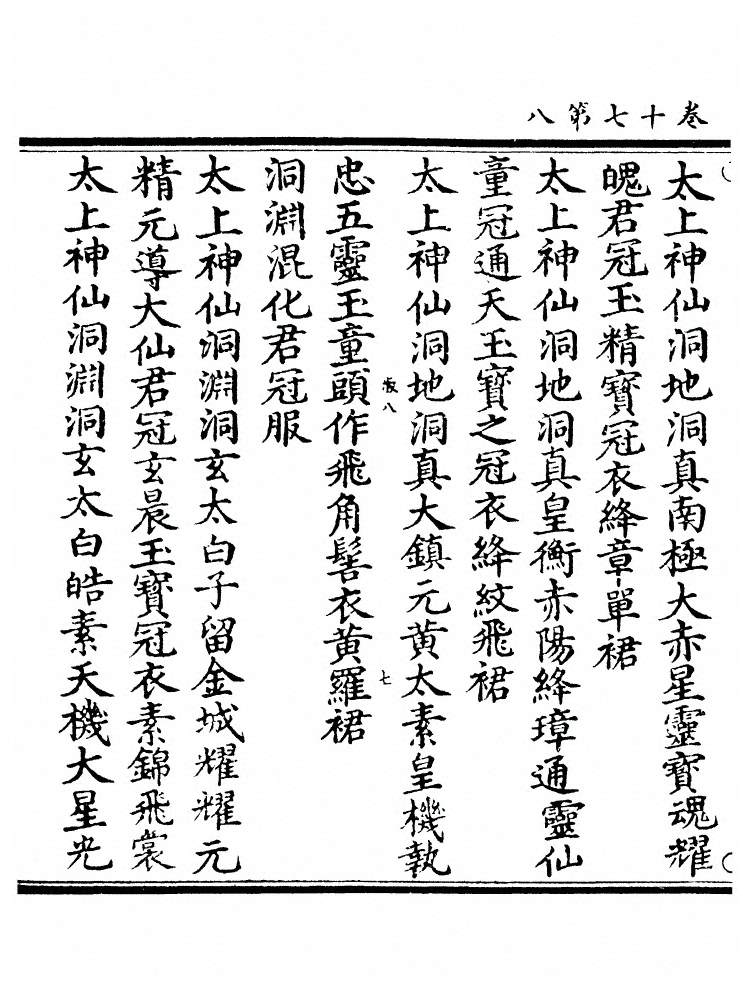 卷十七第八
太上神仙洞地洞真南極大赤星靈寳魂耀
魄君冠玉精寳冠衣絳章單裙
太上神仙洞地洞真皇衡赤陽絳璋通靈仙
童冠通天玉寳之冠衣絳紋飛裙
太上神仙洞地洞真大鎮元黄太素皇機執
板八
七
忠五靈玉童頭作飛角髻衣黄羅裙
洞淵混化君冠服
太上神仙洞淵洞玄太白子留金城耀耀元
精元導大仙君冠玄晨玉寳冠衣素錦飛裳
太上神仙洞淵洞玄太白皓素天機大星光